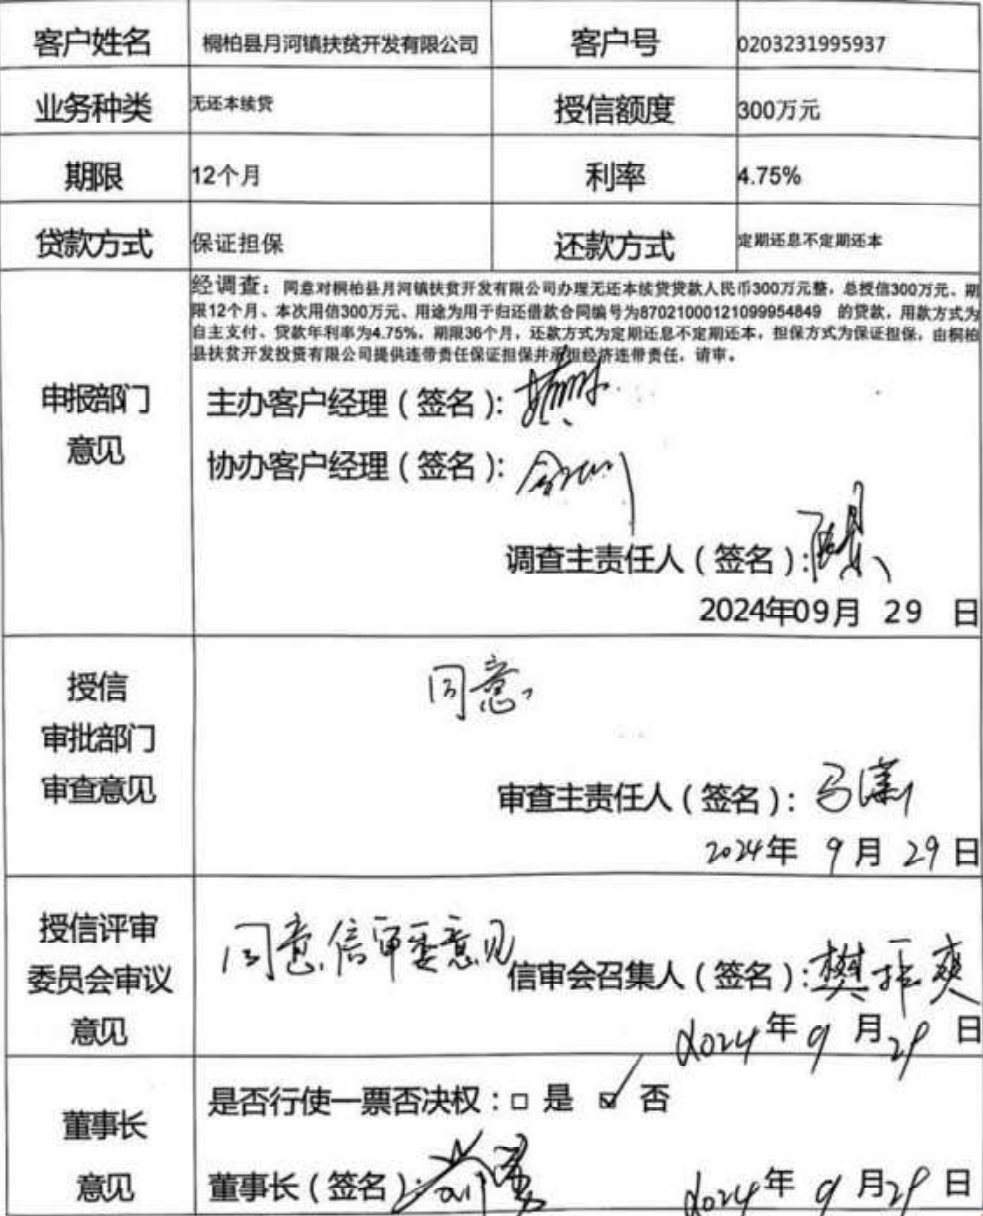 客户姓名 桐柏县月河镇扶贫开发有限公司 客户号 0203231995937
业务种类 无还本续贷 授信额度 300万元
期限 12个月 利率 4.75%
贷款方式 保证担保 还款方式 定期还息不定期还本
经调查：同意对桐柏县月河镇扶贫开发有限公司办理无还本续贷贷款人民币300万元整，总授信300万元、期
限12个月、本次用信300万元、用途为用于归还借款合同编号为87021000121099954849 的贷款，用款方式为
自主支付、贷款年利率为4.75%，期限36个月，还款方式为定期还息不定期还本，担保方式为保证担保，由桐柏
县扶贫开发投资有限公司提供连带责任保证担保并承担经济连带责任，请审。
申报部门
意见
主办客户经理（签名）：
协办客户经理（签名）：
调查主责任人（签名）：
2024年09月 29 日
授信
审批部门
审查意见
同意，
审查主责任人（签名）：马潇
2024年 9月 29日
授信评审
委员会审议
意见
同意信审委意见
信审会召集人（签名）：樊振爽
2024年 9月29日
董事长
意见
是否行使一票否决权：□ 是 ☑ 否
董事长（签名）：
2024年 9月29日